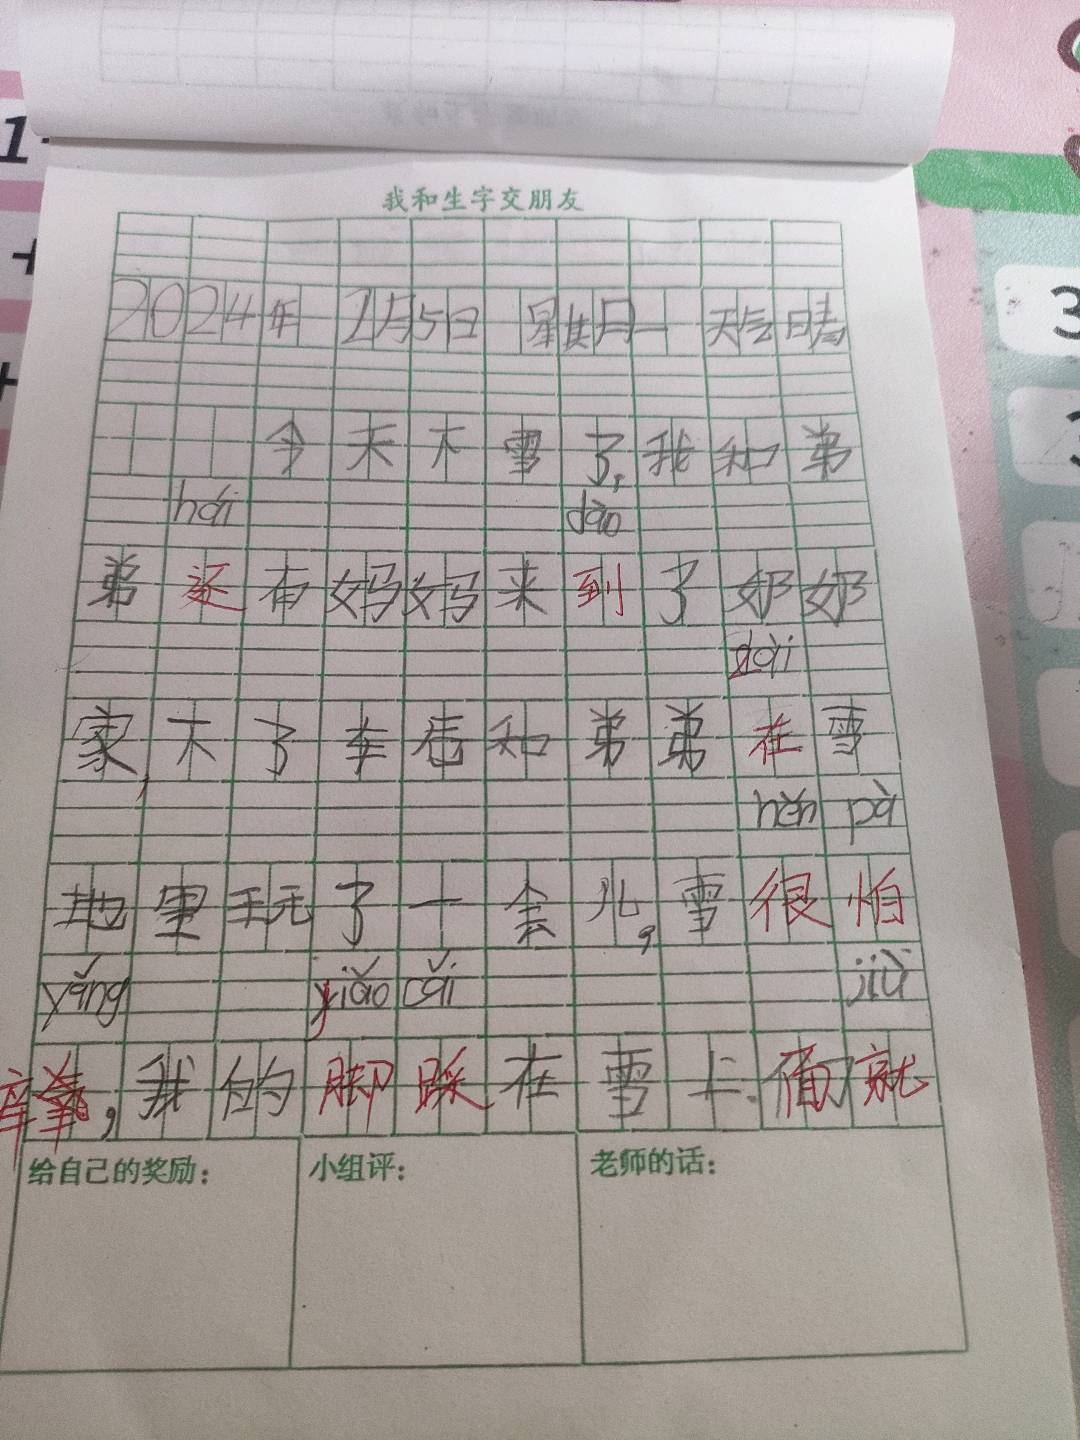 我和生字交朋友
2024年2月5日 星期一 天气晴
今天下雪了,我和弟
hái dào
弟还有妈妈来到了奶奶
zài
家,下了车后和弟弟在雪
hěn pà
地里玩了一会儿,雪很怕
yǎng jiǎo cǎi jiù
痒,我的脚踩在雪上.面就
给自己的奖励:
小组评:
老师的话:
1
3